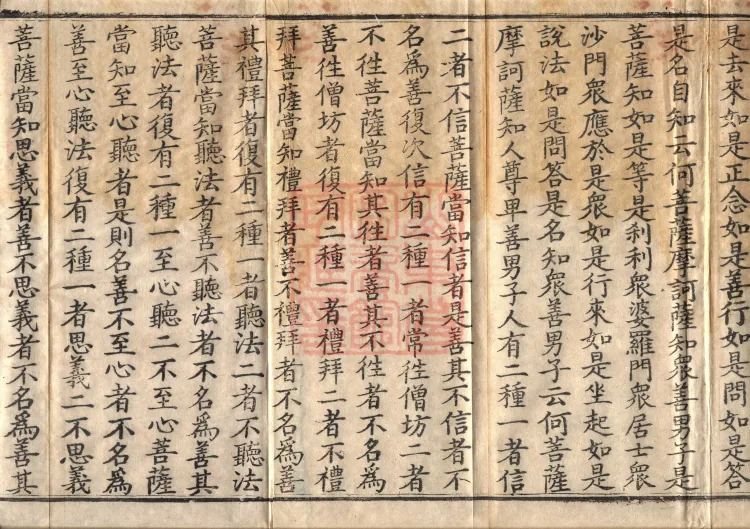 是去來如是正念如是善行如是問如是答
是名自知云何菩薩摩訶薩知衆善男子是
菩薩知如是等是刹利衆婆羅門衆居士衆
沙門衆應於是衆如是行來如是坐起如是
說法如是問答是名知衆善男子云何菩薩
摩訶薩知人尊卑善男子人有二種一者信
二者不信菩薩當知信者是善其不信者不
名爲善復次信有二種一者常徃僧坊二者
不徃菩薩當知其徃者善其不徃者不名爲
善徃僧坊者復有二種一者禮拜二者不禮
拜菩薩當知禮拜者善不禮拜者不名爲善
其禮拜者復有二種一者聽法二者不聽法
菩薩當知聽法者善不聽法者不名爲善其
聽法者復有二種一至心聽二不至心菩薩
當知至心聽者是則名善不至心者不名爲
善至心聽法復有二種一者思義二不思義
菩薩當知思義者善不思義者不名爲善其